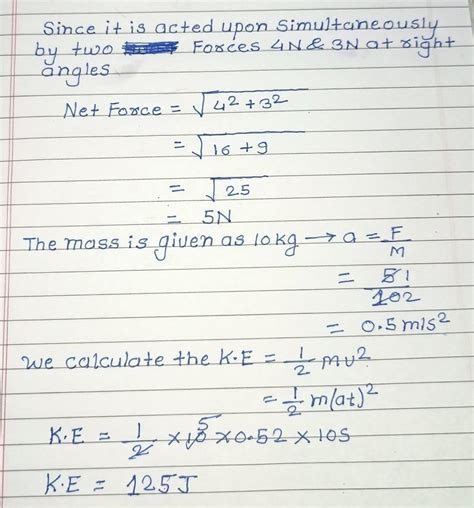 Since it is acted upon simultaneously
by two Forces 4N & 3N at right
angles
Net Force = √4² + 3²
= √16 + 9
= √25
= 5N
The mass is given as 10kg → a = F/M
= 51/102
= 0.5 m/s²
we calculate the K.E = 1/2 mv²
= 1/2 m(at)²
K.E = 1/2 × 10 5 × 0.52 × 105
K.E = 125J